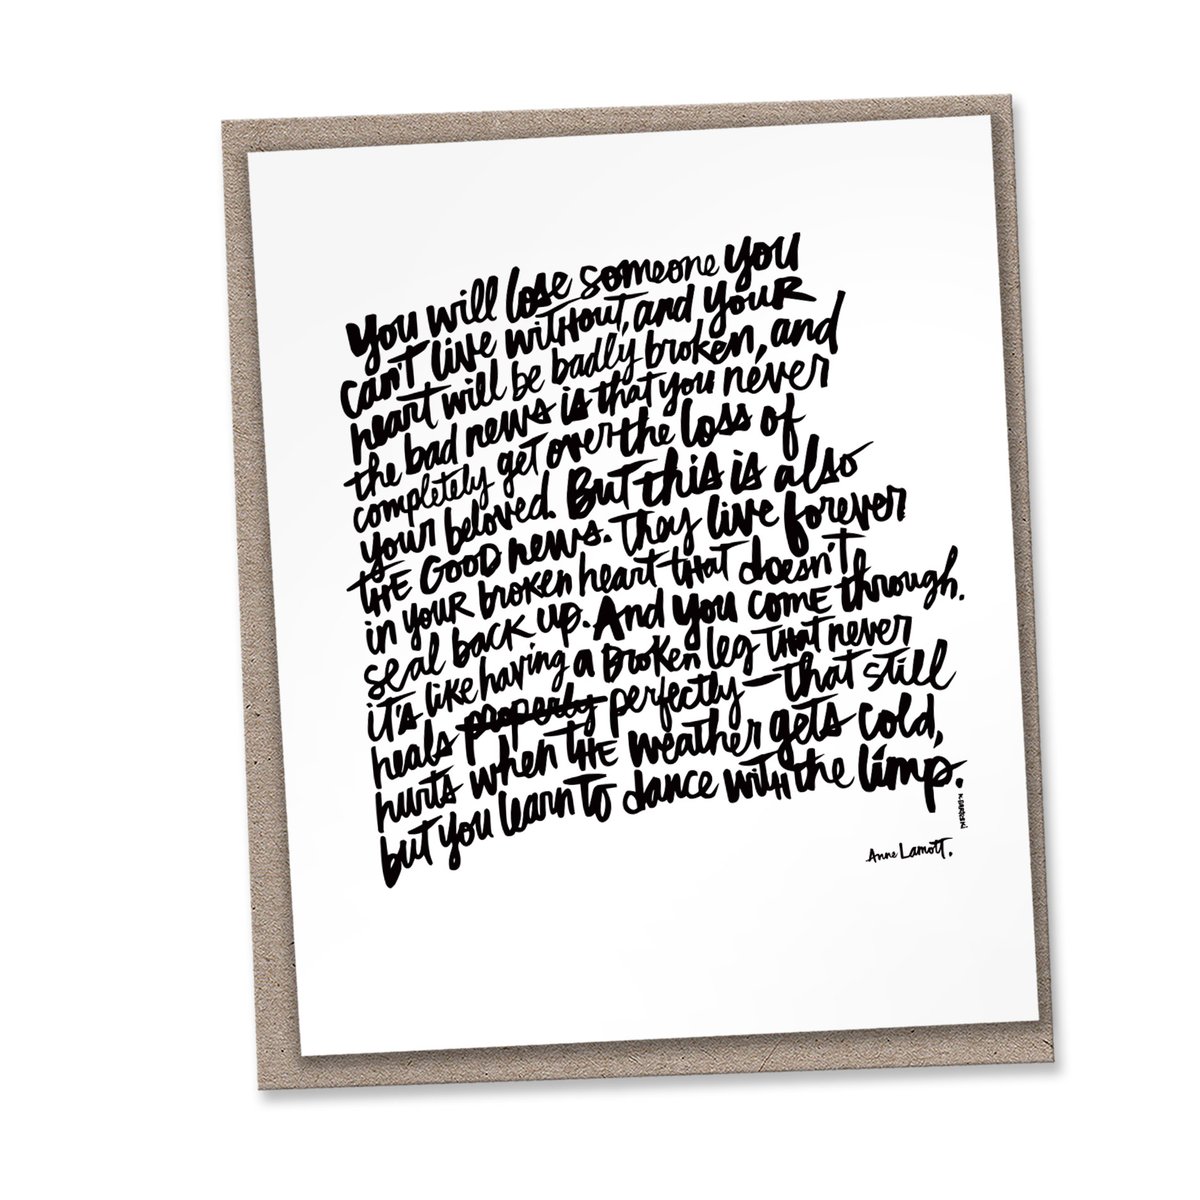 You will lose someone you
can't live without, and your
heart will be badly broken, and
the bad news is that you never
completely get over the loss of
your beloved. But this is also
THE GOOD news. They live forever
in your broken heart that doesn't
seal back up. And you come through.
it's like having a broken leg that never
heals properly perfectly—that still
hurts when the weather gets cold,
but you learn to dance with the limp.
Anne Lamott.